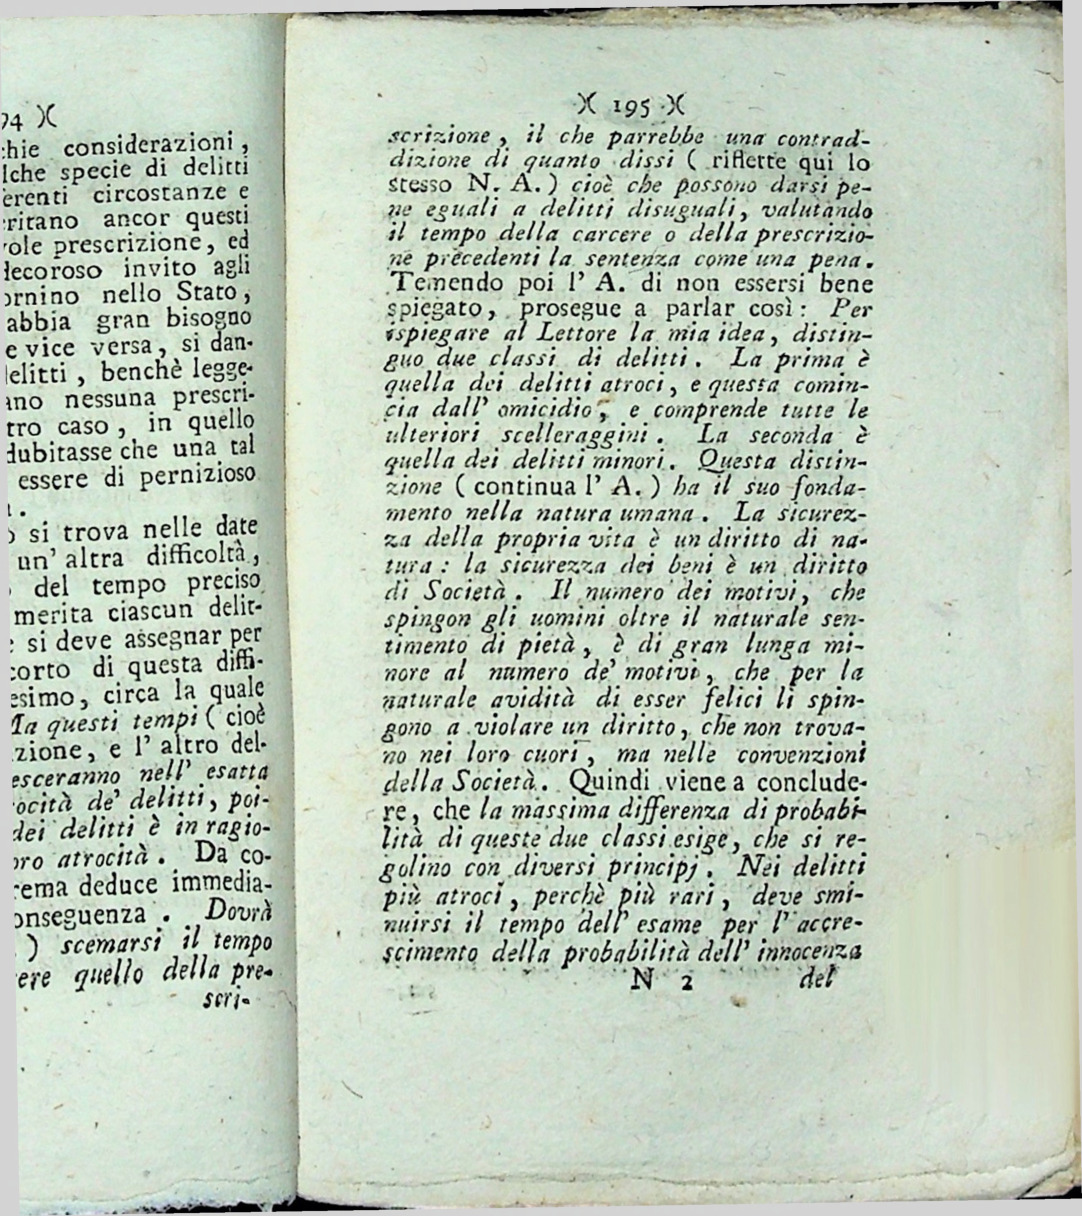 94 )(
chie considerazioni,
lche specie di delitti
ferenti circostanze e
eritano ancor questi
vole prescrizione, ed
decoroso invito agli
ornino nello Stato,
abbia gran bisogno
e vice versa, si dan-
delitti, benchè legge-
ano nessuna prescri-
tro caso, in quello
dubitasse che una tal
essere di pernizioso
si trova nelle date
un' altra difficoltà,
del tempo preciso
merita ciascun delit-
si deve assegnar per
corto di questa diffi-
esimo, circa la quale
Ma questi tempi (cioè
zione, e l' altro del-
esceranno nell' esatta
ocità de' delitti, poi-
dei delitti è in ragio-
oro atrocità. Da co-
rema deduce immedia-
onseguenza. Dovrà
) scemarsi il tempo
ere quello della pre-
scri-
)( 195 )(
scrizione, il che parrebbe una contrad-
dizione di quanto dissi ( riflette qui lo
stesso N. A.) cioè che possono darsi pe-
ne eguali a delitti disuguali, valutando
il tempo della carcere o della prescrizio-
ne precedenti la sentenza come una pena.
Temendo poi l' A. di non essersi bene
spiegato, prosegue a parlar così: Per
ispiegare al Lettore la mia idea, distin-
guo due classi di delitti. La prima è
quella dei delitti atroci, e questa comin-
cia dall' omicidio, e comprende tutte le
ulteriori scelleraggini. La seconda è
quella dei delitti minori. Questa distin-
zione ( continua l' A.) ha il suo fonda-
mento nella natura umana. La sicurez-
za della propria vita è un diritto di na-
tura: la sicurezza dei beni è un diritto
di Società. Il numero dei motivi, che
spingon gli uomini oltre il naturale sen-
timento di pietà, è di gran lunga mi-
nore al numero de' motivi, che per la
naturale avidità di esser felici li spin-
gono a violare un diritto, che non trova-
no nei loro cuori, ma nelle convenzioni
della Società. Quindi viene a conclude-
re, che la massima differenza di probabi-
lità di queste due classi esige, che si re-
golino con diversi principj. Nei delitti
più atroci, perchè più rari, deve smi-
nuirsi il tempo dell' esame per l' accre-
scimento della probabilità dell' innocenza
N 2 del